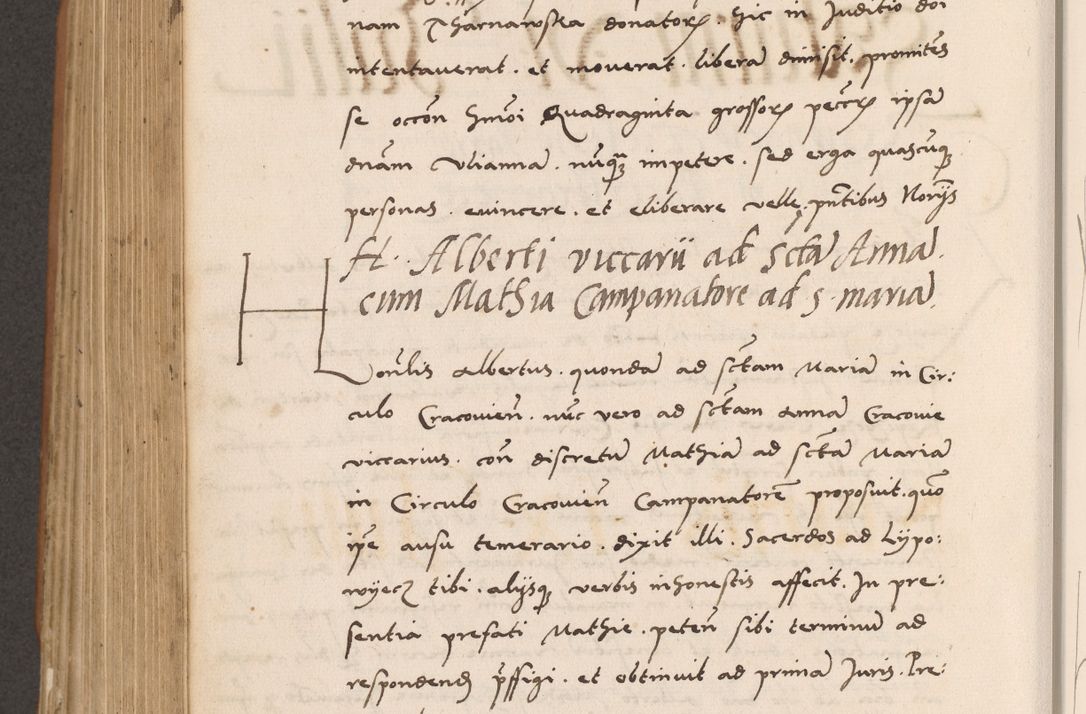 nam Tharnawska donatorꝝ. hic in Juditio doi
intentauerat. et mouerat. liberā dimisit. promitēs
se occōn hmōi Quadraginta grossorꝝ peccꝝ ipsā
dnām Vliannā. nūquā impetere. sed erga quascūqꝫ
personas. euincere. et eliberare velle. pñtibus Norijs
H. Alberti viccarii ad sctā Annā.
cum Mathia Campanatore ad s. mariā.
Honlis Albertus. quondā ad sctam Mariā in Cir:
culo Cracouien̄. nūc vero ad sctam Annā Cracouie
viccarius. con̄ discretū Mathiā ad sctā Mariā
in Circulo Cracouien̄ Campanatorē proposuit. quo
ipē ausu temerario. dixit illi. Sacerdos ad Lypo:
wyecz tibi. alijsqꝫ verbis inhonestis affecit. In pre:
sentia prefati Mathie. peten̄ sibi terminū ad
respondend̄ p̄ffigi. et obtinuit ad primā Juris. Pre: